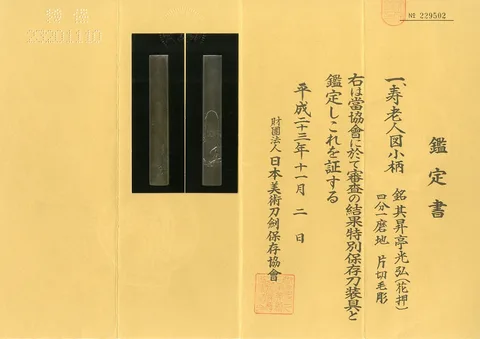 鑑定書
一、寿老人図小柄
銘 其昇亭光弘(花押)
四分一磨地 片切毛彫
右は當協會に於て審査の結果特別保存刀装具と
鑑定しこれを証する
平成二十三年十一月二日
財團法人 日本美術刀劍保存協會
№ 229502